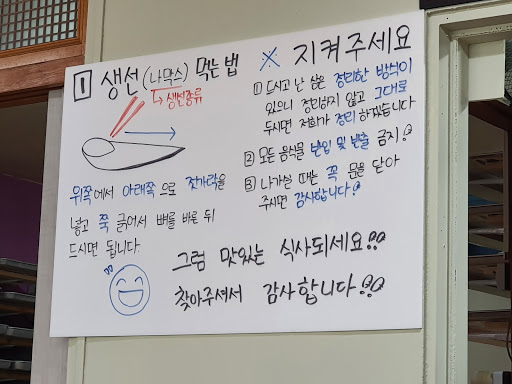 1 생선(나막스) 먹는 법
↳ 생선종류
위쪽에서 아래쪽으로 젓가락을
넣고 쭉 긁어서 뼈를 바른 뒤
드시면 됩니다.
※ 지켜주세요
① 드시고 난 상은 정리한 방식이
있으니 정리하지 않고 그대로
두시면 저희가 정리 하겠습니다
② 모든 음식물 반입 및 반출 금지!
③ 나가실 때는 꼭 문을 닫아
주시면 감사합니다!
그럼 맛있는 식사되세요!!
찾아주셔서 감사합니다!!